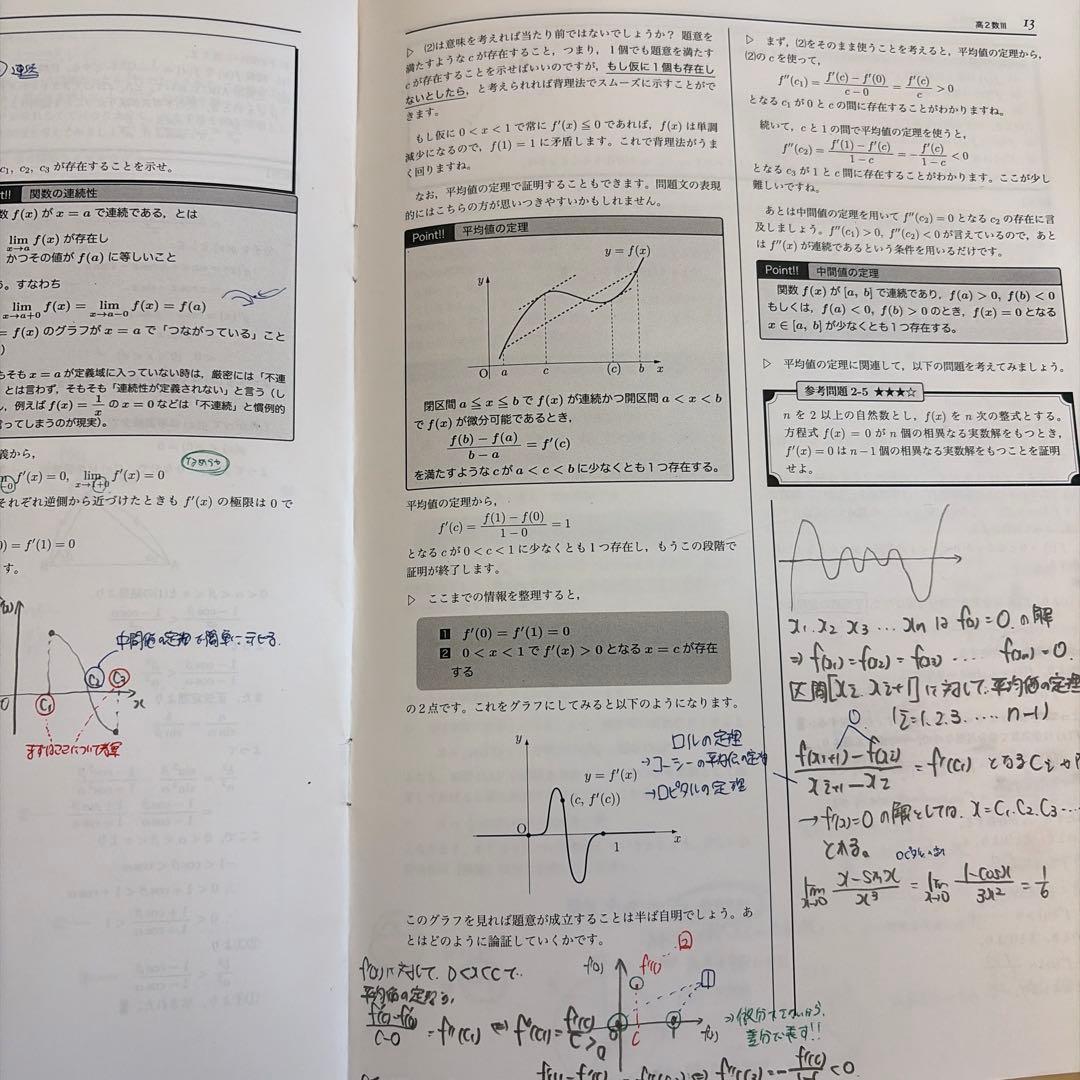 連続
c₁, c₂, c₃ が存在することを示せ。
nt!! 関数の連続性
数 f(x) が x = a で連続である，とは
lim f(x) が存在し
x→a
かつその値が f(a) に等しいこと
う。すなわち
lim f(x) = lim f(x) = f(a)
x→a+0 x→a−0
= f(x) のグラフが x = a で「つながっている」こと
もそも x = a が定義域に入っていない時は，厳密には「不連
とは言わず，そもそも「連続性が定義されない」と言う（し
し，例えば f(x) = 1/x の x = 0 などは「不連続」と慣例的
言ってしまうのが現実）。
義から，
f′(x) = 0, lim f′(x) = 0
x→1+0
なめらか
それぞれ逆側から近づけたときも f′(x) の極限は 0 で
0) = f′(1) = 0
す。
中間値の定理で簡単に示せる.
C₁
C₂
C₃
0
x
まずはここについて考察
▷ (2)は意味を考えれば当たり前ではないでしょうか？ 題意を
満たすような c が存在すること，つまり，1 個でも題意を満たす
c が存在することを示せばいいのですが，もし仮に 1 個も存在し
ないとしたら，と考えられれば背理法でスムーズに示すことがで
きます。
もし仮に 0 < x < 1 で常に f′(x) ≦ 0 であれば，f(x) は単調
減少になるので，f(1) = 1 に矛盾します。これで背理法がうま
く回りますね。
なお，平均値の定理で証明することもできます。問題文の表現
的にはこちらの方が思いつきやすいかもしれません。
Point!! 平均値の定理
y = f(x)
y
O a c (c) b x
閉区間 a ≦ x ≦ b で f(x) が連続かつ開区間 a < x < b
で f(x) が微分可能であるとき，
(f(b) − f(a))/(b − a) = f′(c)
を満たすような c が a < c < b に少なくとも 1 つ存在する。
平均値の定理から，
f′(c) = (f(1) − f(0))/(1 − 0) = 1
となる c が 0 < c < 1 に少なくとも 1 つ存在し，もうこの段階で
証明が終了します。
▷ ここまでの情報を整理すると，
1 f′(0) = f′(1) = 0
2 0 < x < 1 で f′(x) > 0 となる x = c が存在
する
の 2 点です。これをグラフにしてみると以下のようになります。
y
y = f′(x)
(c, f′(c))
O
1
x
ロルの定理
→コーシーの平均値の定理
→ロピタルの定理
このグラフを見れば題意が成立することは半ば自明でしょう。あ
とはどのように論証していくかです。
f′(x)に対して. 0<x<cで.
平均値の定理より,
(f′(c)−f′(0))/(c−0) = f″(c₁) ⇔ f″(c₁) = f′(c)/c > 0
f′(c)
2
1
c
⇒微分できないから,
差分で表す!!
⇔ f″(c₃) = −f′(c)/(1−c) < 0.
高 2 数 III 13
▷ まず，(2)をそのまま使うことを考えると，平均値の定理から，
(2)の c を使って，
f″(c₁) = (f′(c) − f′(0))/(c − 0) = f′(c)/c > 0
となる c₁ が 0 と c の間に存在することがわかりますね。
続いて，c と 1 の間で平均値の定理を使うと，
f″(c₂) = (f′(1) − f′(c))/(1 − c) = −f′(c)/(1 − c) < 0
となる c₃ が 1 と c 間に存在することがわかります。ここが少し
難しいですね。
あとは中間値の定理を用いて f″(c₂) = 0 となる c₂ の存在に言
及しましょう。f″(c₁) > 0, f″(c₂) < 0 が言えているので，あと
は f″(x) が連続であるという条件を用いるだけです。
Point!! 中間値の定理
関数 f(x) が [a, b] で連続であり，f(a) > 0, f(b) < 0
もしくは，f(a) < 0, f(b) > 0 のとき，f(x) = 0 となる
x ∈ [a, b] が少なくとも 1 つ存在する。
▷ 平均値の定理に関連して，以下の問題を考えてみましょう。
参考問題 2-5 ★★★☆
n を 2 以上の自然数とし，f(x) を n 次の整式とする。
方程式 f(x) = 0 が n 個の相異なる実数解をもつとき，
f′(x) = 0 は n−1 個の相異なる実数解をもつことを証明
せよ。
x₁. x₂ x₃ … xn は f(x) = 0. の解
⇒ f(x₁) = f(x₂) = f(x₃) …. f(xn) = 0.
区間[xi. xi+1] に対して. 平均値の定理
(i=1. 2. 3. …. n−1)
0
(f(xi+1)−f(xi))/(xi+1−xi) = f′(ci) となる ci が
→ f′(x)=0 の解としては. x = C₁. C₂. C₃…
とれる。
lim x→0 (x−sinx)/x³ = lim x→0 (1−cosx)/3x² = 1/6